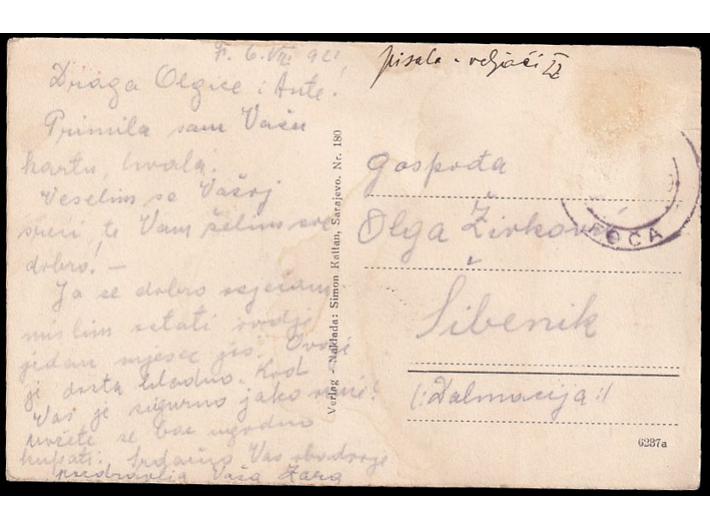 F. 6. VIII 921
Draga Olgice i Ante!
Primila sam Vašu
kartu, hvala.
Veselim se Vašoj
sreći, te Vam želim sve
dobro! —
Ja se dobro osjećam
mislim ostati ovdje
jedan mjesec još. Ovdje
je dosta hladno. Kod
Vas je sigurno jako vruće!
možete se bar ugodno
kupati. Srdačno Vas obadvoje
pozdravlja Vaša Zora
pisala - odjači
Verlag - Naklada: Simon Kattan, Sarajevo. Nr. 180
Gospođa
Olga Živković
FOČA
Šibenik
(:Dalmacija:)
6237a